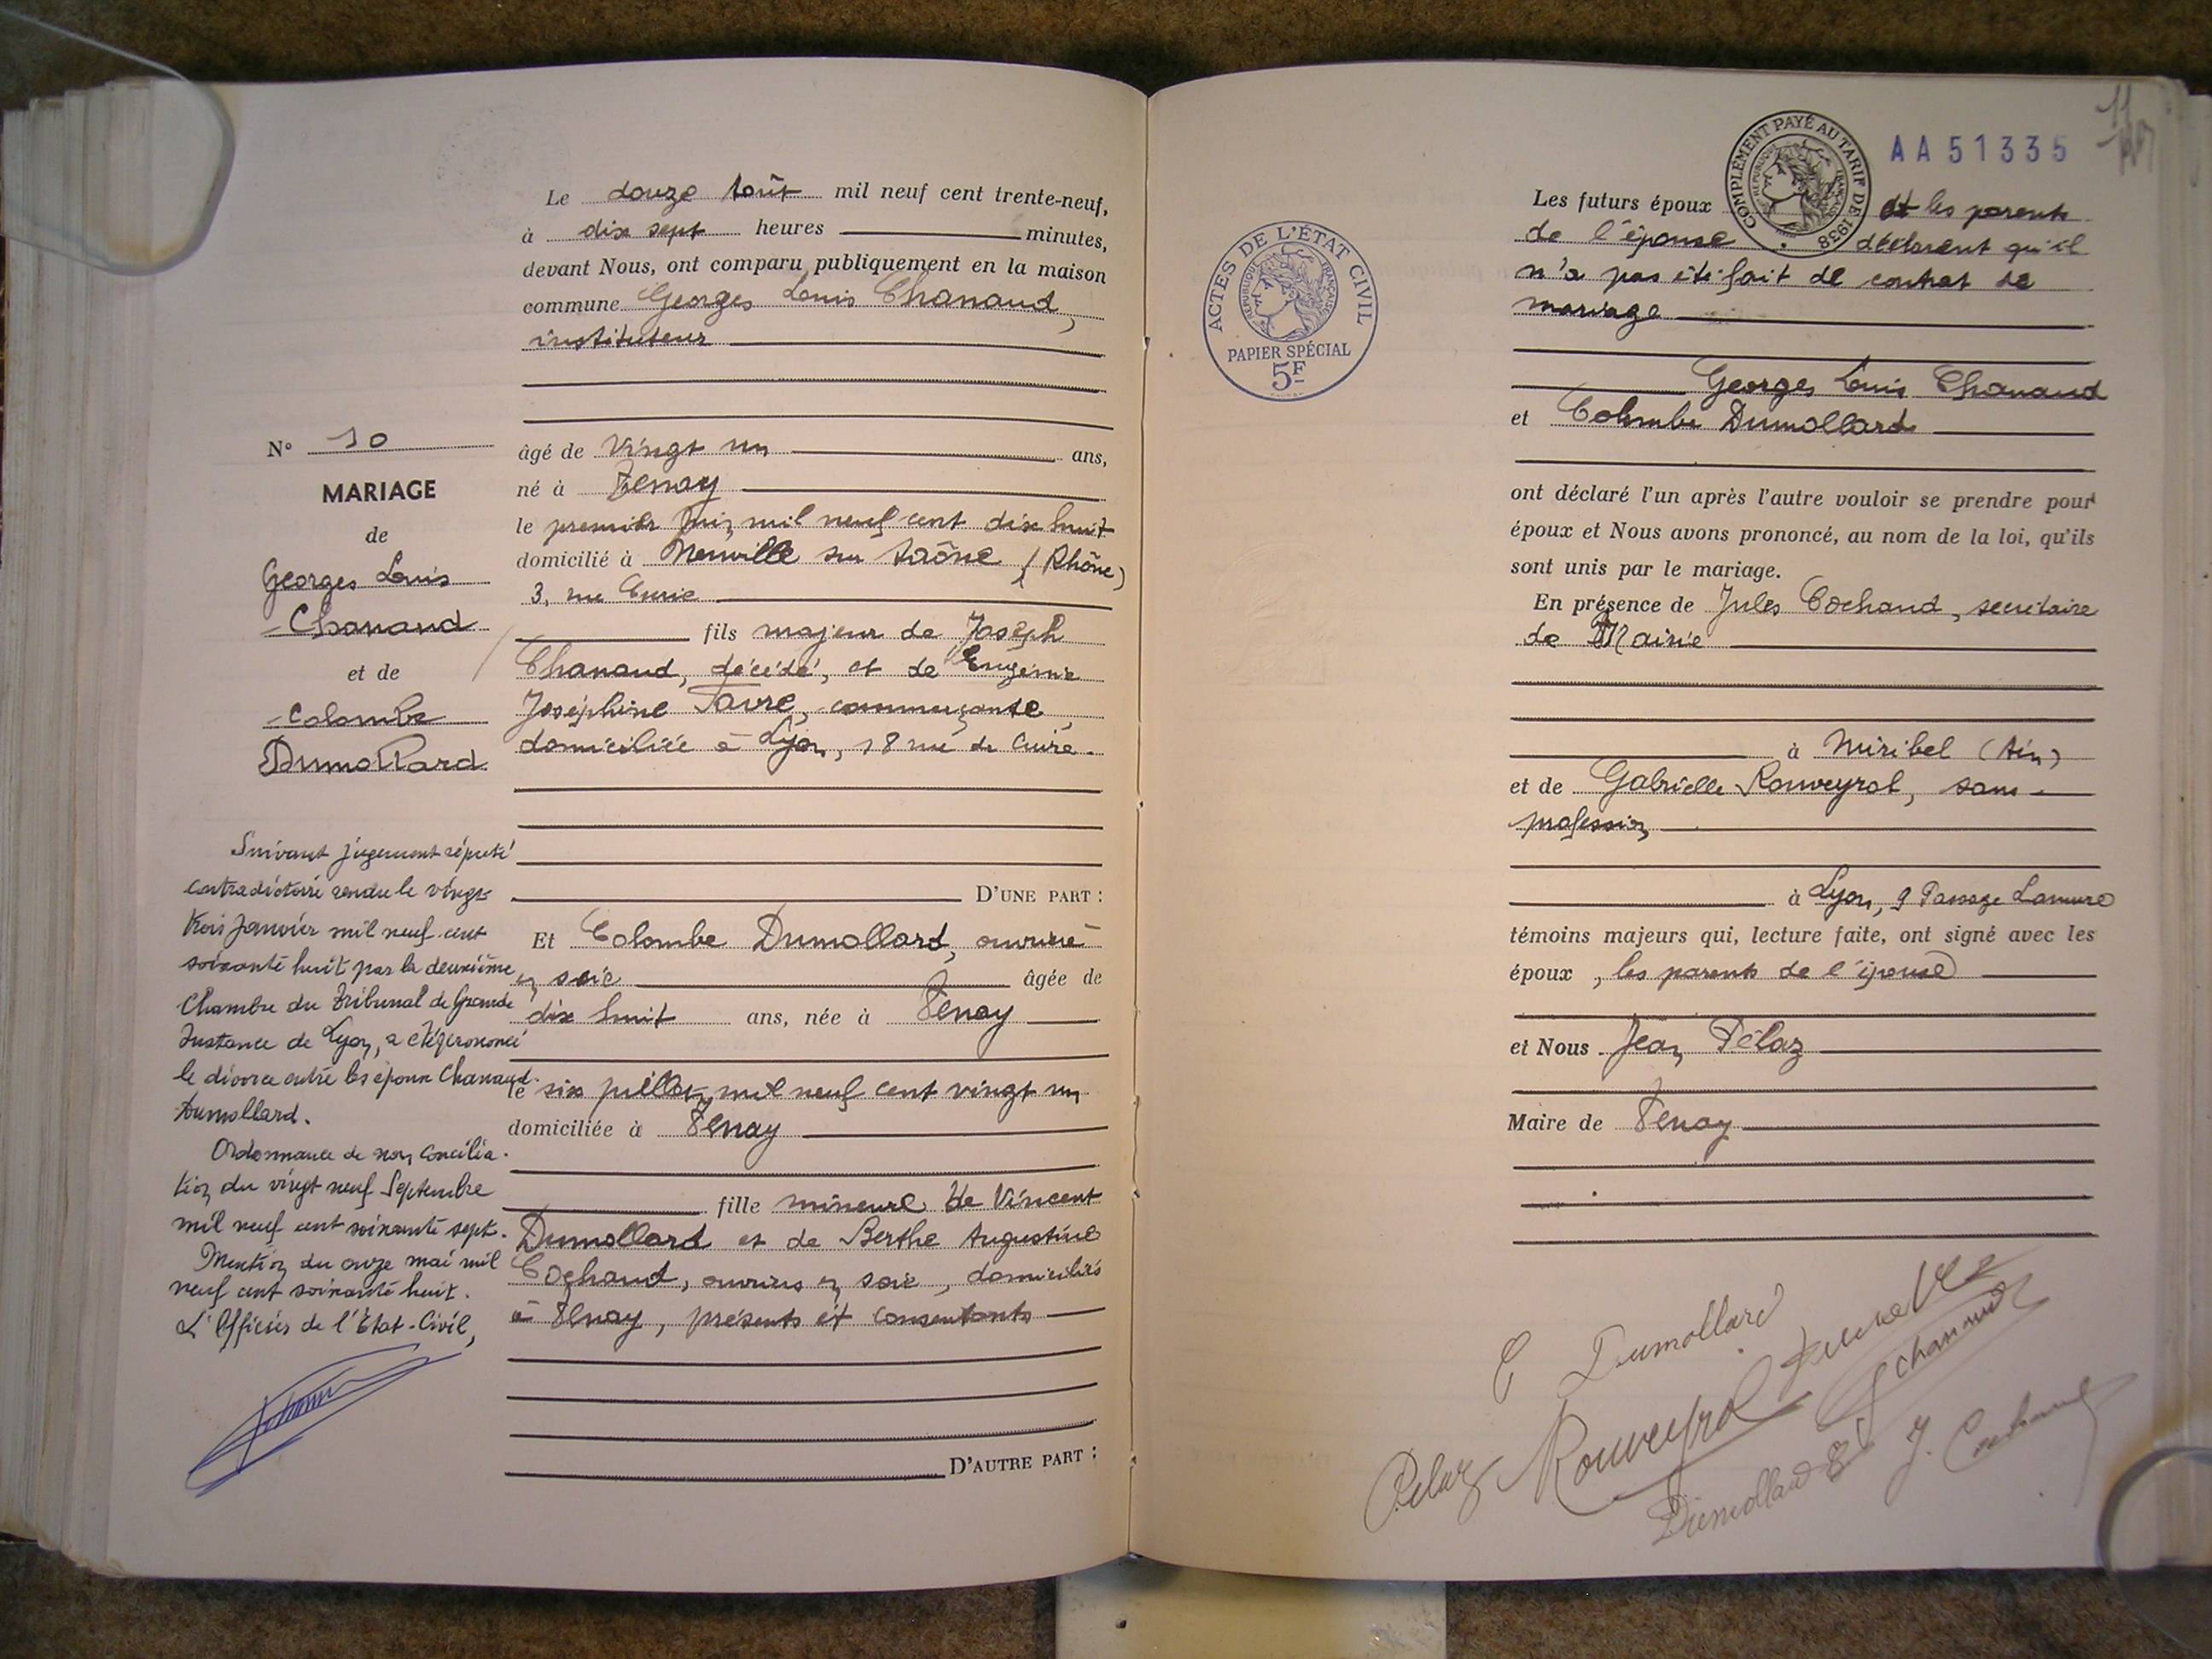 Le douze Août mil neuf cent trente-neuf,
à dix sept heures minutes,
devant Nous, ont comparu publiquement en la maison
commune Georges Louis Chanaud,
instituteur
N° 10
MARIAGE
de
Georges Louis
Chanaud
et de
Colombe
Dumollard
âgé de vingt un ans,
né à Tenay
le premier Juin mil neuf cent dix huit
domicilié à Neuville sur Saône (Rhône)
3, rue Curie
fils majeur de Joseph
Chanaud, décédé, et de Eugénie
Joséphine Favre, commerçante,
domiciliée à Lyon, 18 rue de Cuire
D'UNE PART :
Et Colombe Dumollard, ouvrière
en soie âgée de
dix huit ans, née à Tenay
le six juillet mil neuf cent vingt un
domiciliée à Tenay
fille mineure de Vincent
Dumollard et de Berthe Augustine
Cochand, ouvriers en soie, domiciliés
à Tenay, présents et consentants
D'AUTRE PART :
Suivant jugement réputé
contradictoire rendu le vingt
trois Janvier mil neuf cent
soixante huit par la deuxième
Chambre du Tribunal de Grande
Instance de Lyon, a été prononcé
le divorce entre les époux Chanaud-
Dumollard.
Ordonnance de non concilia-
tion du vingt neuf Septembre
mil neuf cent soixante sept.
Mention du onze mai mil
neuf cent soixante huit.
L'Officier de l'Etat-Civil,
ACTES DE L'ÉTAT CIVIL
RÉPUBLIQUE FRANÇAISE
PAPIER SPÉCIAL
5F
COMPLÉMENT PAYÉ AU TARIF DE 1938
RÉPUBLIQUE FRANÇAISE
AA51335
11
Les futurs époux et les parents
de l'épouse déclarent qu'il
n'a pas été fait de contrat de
mariage
Georges Louis Chanaud
et Colombe Dumollard
ont déclaré l'un après l'autre vouloir se prendre pour
époux et Nous avons prononcé, au nom de la loi, qu'ils
sont unis par le mariage.
En présence de Jules Cochand, secrétaire
de Mairie
à Miribel (Ain)
et de Gabrielle Rouveyrol, sans
profession
à Lyon, 9 Passage Lamure
témoins majeurs qui, lecture faite, ont signé avec les
époux, les parents de l'épouse
et Nous Jean Pélaz
Maire de Tenay
C Dumollard
Chanaud
Pelaz Rouveyrol
Dumollard B J. Cochand